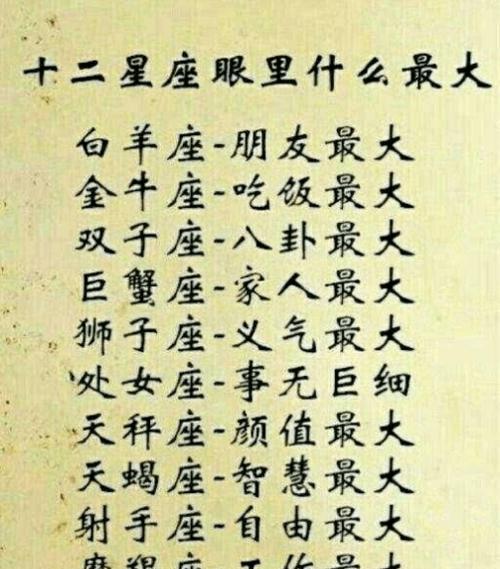 十二星座眼里什么最大
白羊座-朋友最大
金牛座-吃饭最大
双子座-八卦最大
巨蟹座-家人最大
狮子座-义气最大
处女座-事无巨细
天秤座-颜值最大
天蝎座-智慧最大
射手座-自由最大